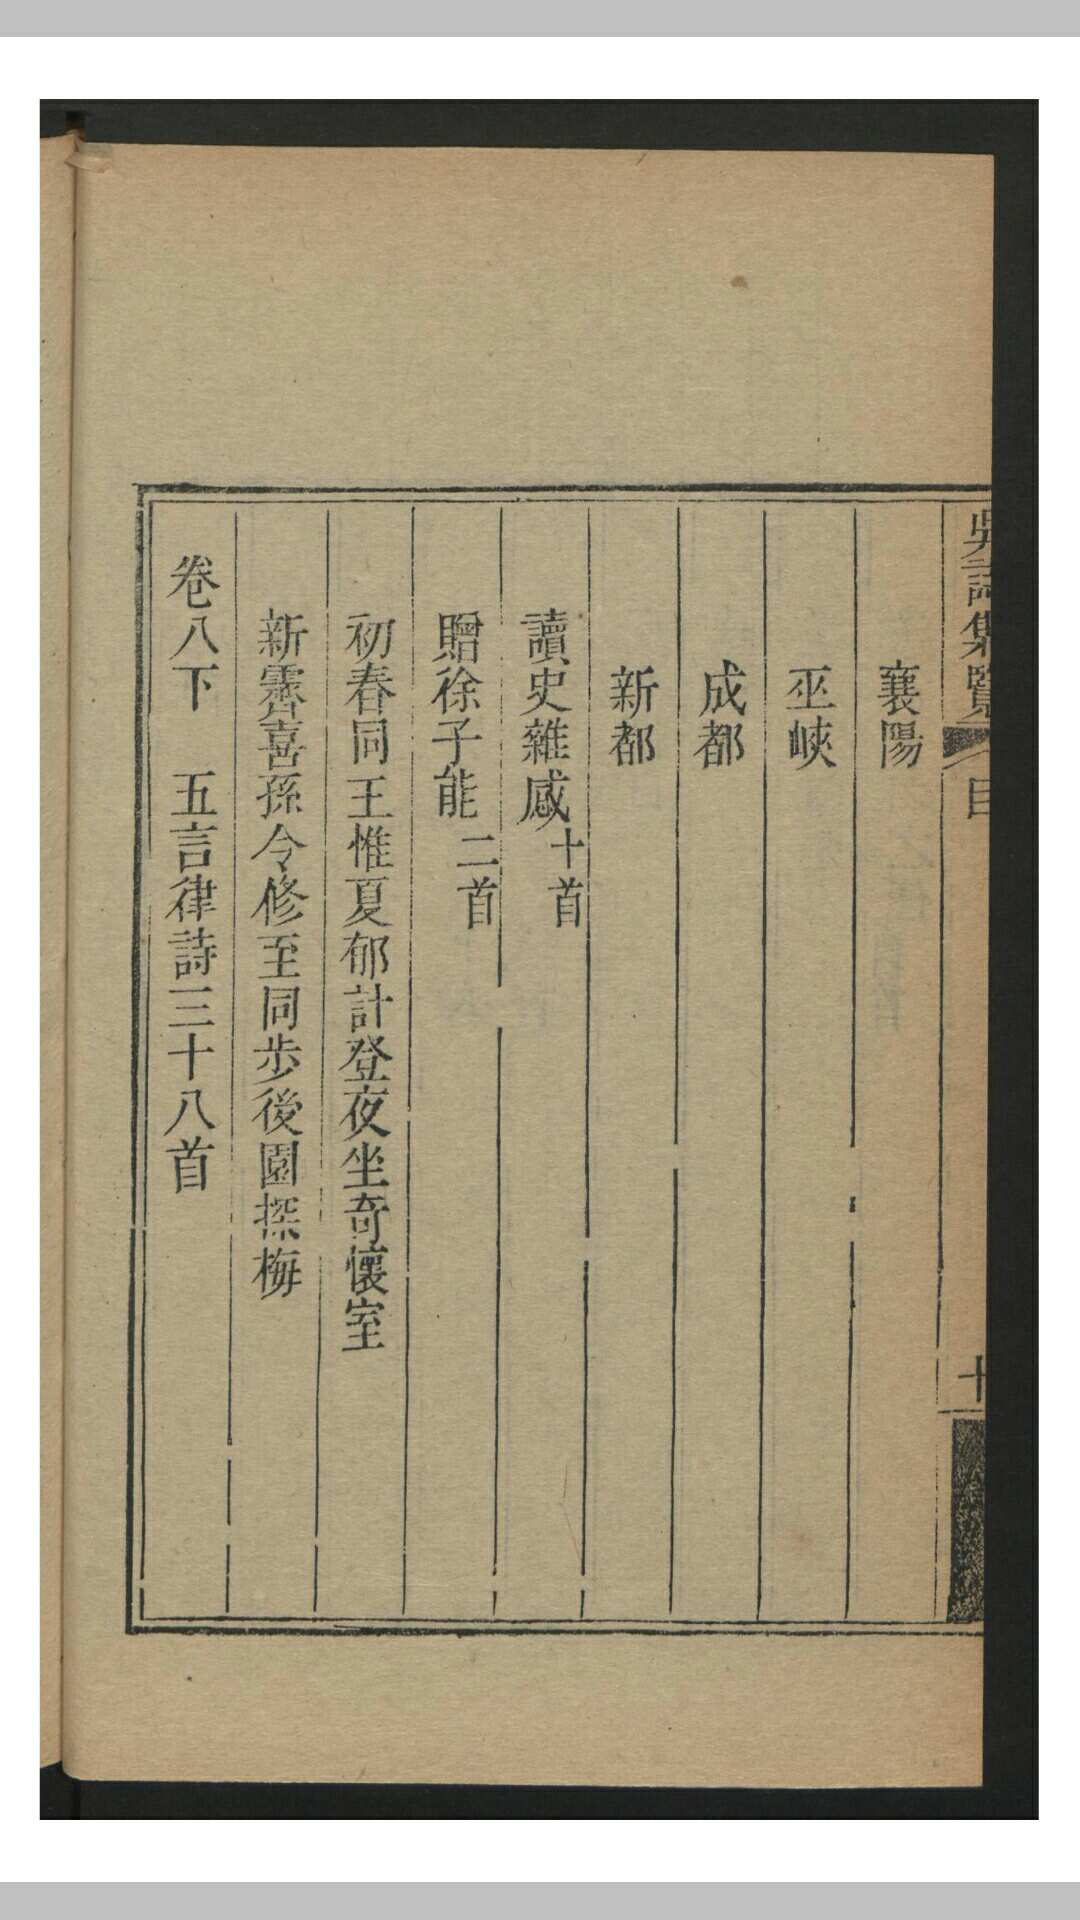 吳詩集覽 目 十
襄陽
巫峽
成都
新都
讀史雜感十首
贈徐子能二首
初春同王惟夏郁計登夜坐奇懷室
新霽喜孫令修至同步後園探梅
卷八下 五言律詩三十八首